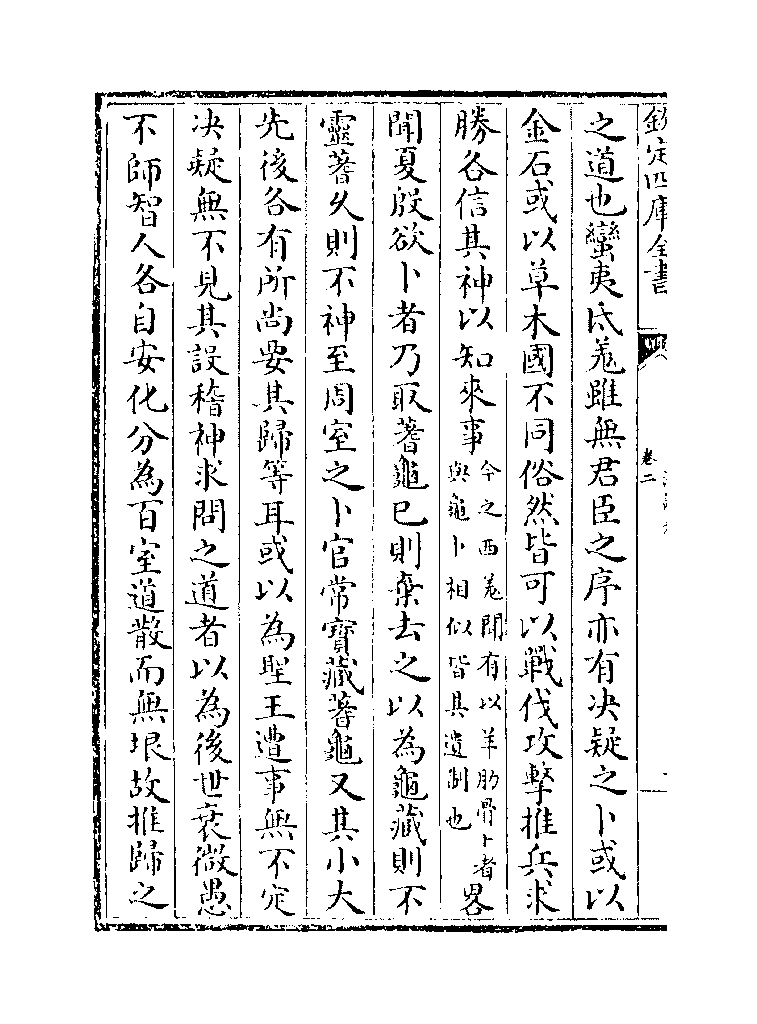 欽定四庫全書
卷二
之道也蠻夷氐羗雖無君臣之序亦有决疑之卜或以
金石或以草木國不同俗然皆可以戰伐攻擊推兵求
勝各信其神以知來事今之西羗聞有以羊肋骨卜者與龜卜相似皆其遺制也畧
聞夏殷欲卜者乃取蓍龜已則棄去之以為龜藏則不
靈蓍久則不神至周室之卜官常寳藏蓍龜又其小大
先後各有所尚要其歸等耳或以為聖王遭事無不定
决疑無不見其設稽神求問之道者以為後世衰微愚
不師智人各自安化分為百室道散而無垠故推歸之